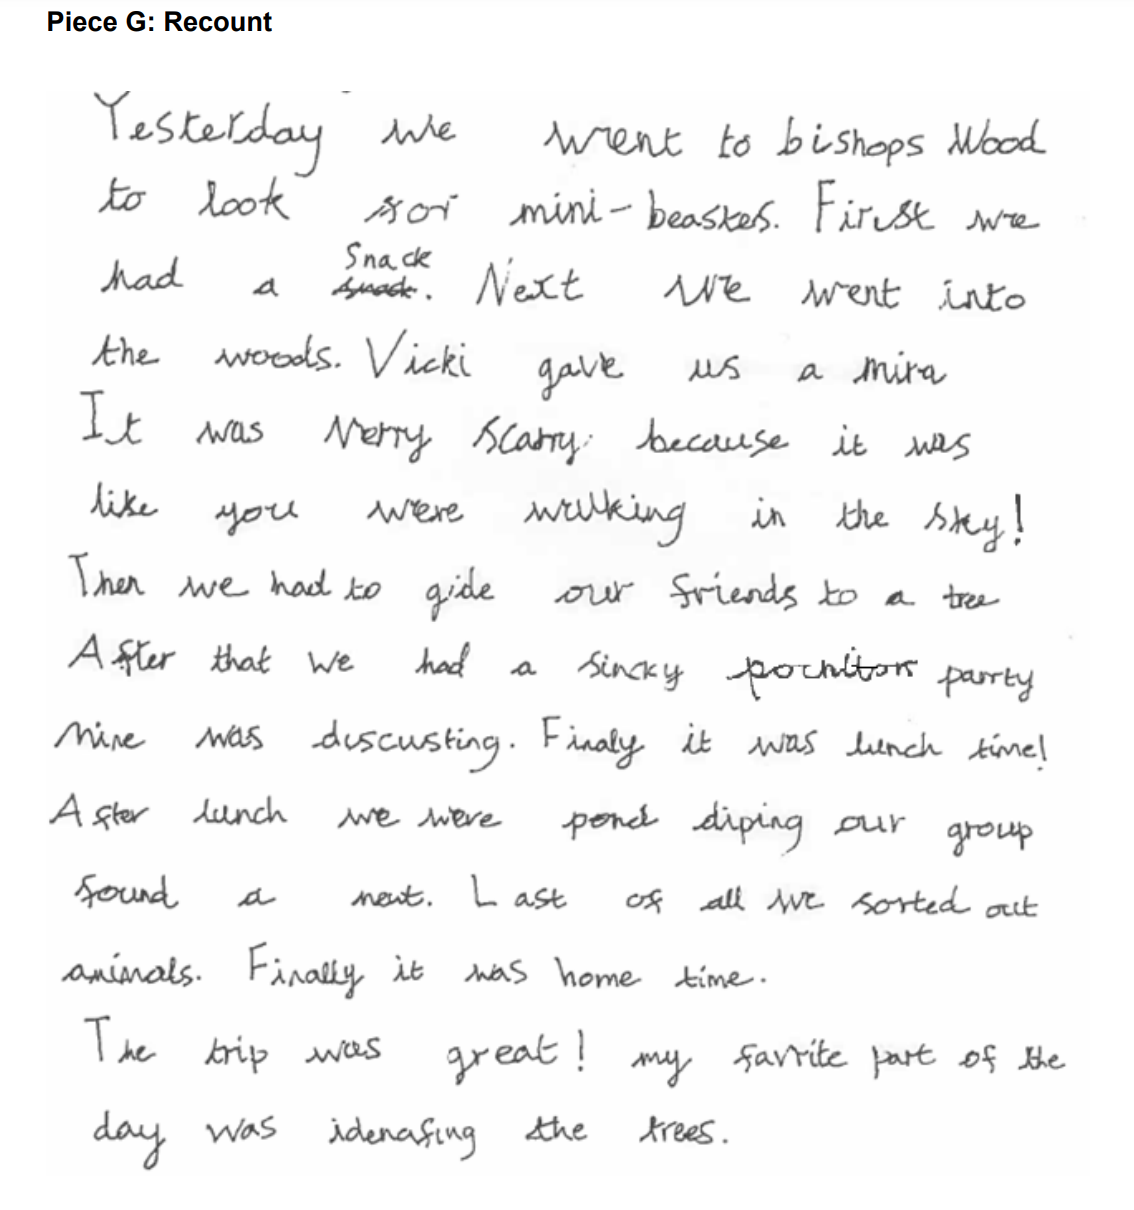 Piece G: Recount
Yesterday we went to bishops Wood
to look for mini-beastes. First we
had a Snack snack. Next we went into
the woods. Vicki gave us a mira
It was Verry Scarry. because it was
like you were walking in the sky!
Then we had to gide our friends to a tree
After that we had a sincky parrty
Mine was discusting. Finaly it was lunch time!
After lunch we were pond diping our group
found a newt. Last of all we sorted out
animals. Finally it was home time.
The trip was great! my favrite part of the
day was idenafing the trees.